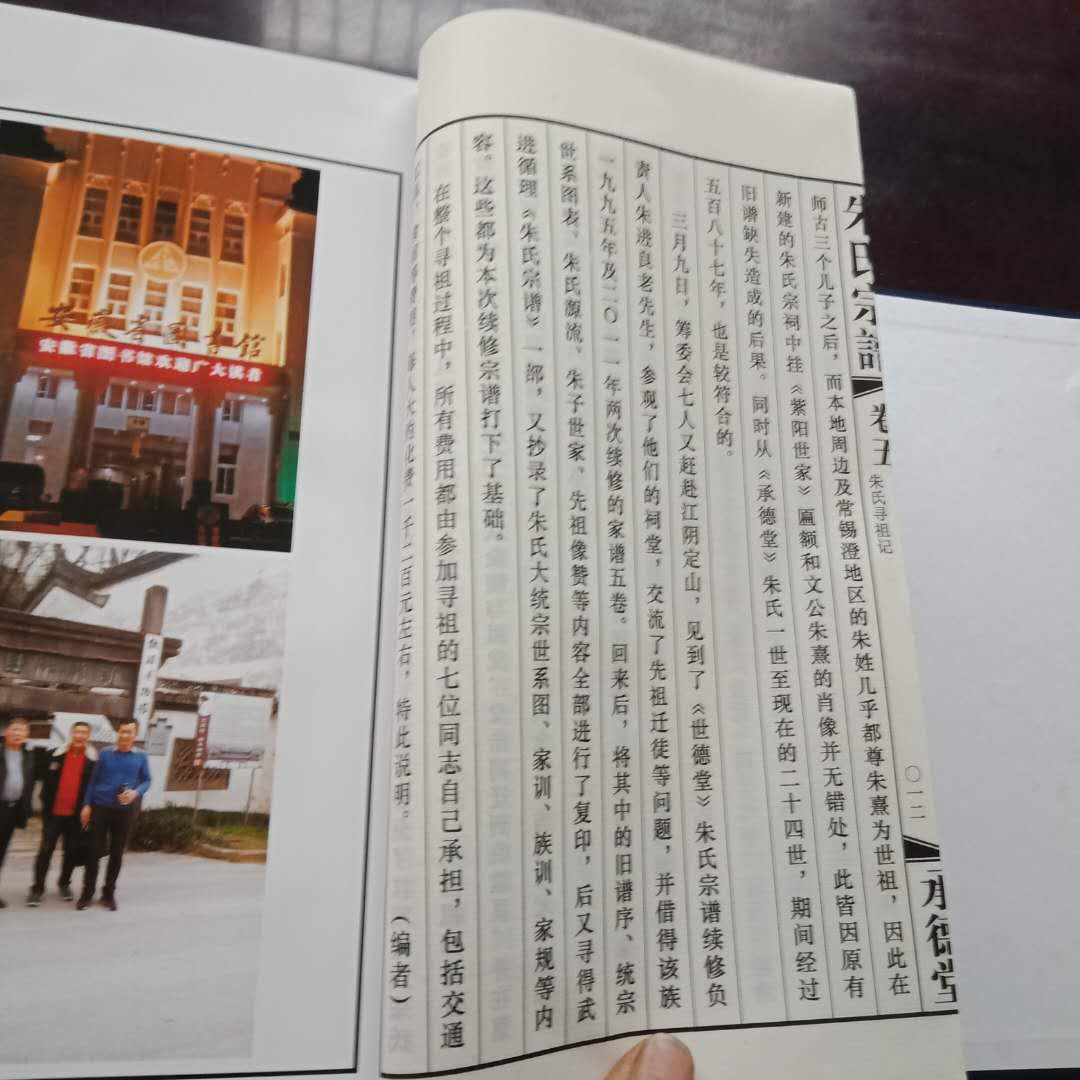 朱氏宗譜
卷五
朱氏寻祖记
〇一二
承德堂
师古三个儿子之后，而本地周边及常锡澄地区的朱姓几乎都尊朱熹为世祖，因此在
新建的朱氏宗祠中挂《紫阳世家》匾额和文公朱熹的肖像并无错处，此皆因原有
旧谱缺失造成的后果。同时从《承德堂》朱氏一世至现在的二十四世，期间经过
五百八十七年，也是较符合的。
三月九日，筹委会七人又赶赴江阴定山，见到了《世德堂》朱氏宗谱续修负
责人朱进良老先生，参观了他们的祠堂，交流了先祖迁徒等问题，并借得该族
一九九五年及二〇一一年两次续修的家谱五卷。回来后，将其中的旧谱序、统宗
世系图表、朱氏源流、朱子世家、先祖像赞等内容全部进行了复印，后又寻得武
进循理《朱氏宗谱》一部，又抄录了朱氏大统宗世系图、家训、族训、家规等内
容。这些都为本次续修宗谱打下了基础。
在整个寻祖过程中，所有费用都由参加寻祖的七位同志自己承担，包括交通
每人大约化费一千二百元左右，特此说明。
（编者）
安徽省图书馆
安徽省图书馆欢迎广大读者